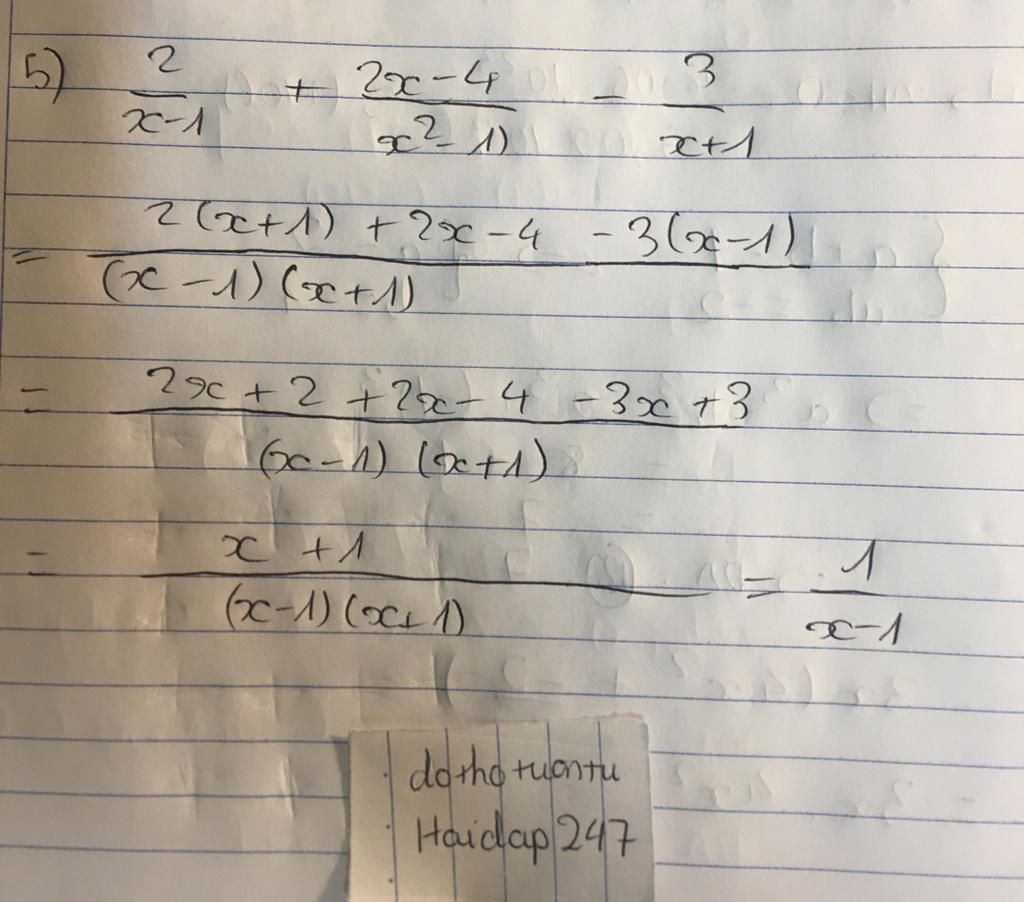 5) 2/(x-1) + (2x-4)/(x²-1) - 3/(x+1)
= (2(x+1) + 2x-4 - 3(x-1))/((x-1)(x+1))
= (2x+2+2x-4-3x+3)/((x-1)(x+1))
= (x+1)/((x-1)(x+1)) = 1/(x-1)
dothotuontu
Haidap247